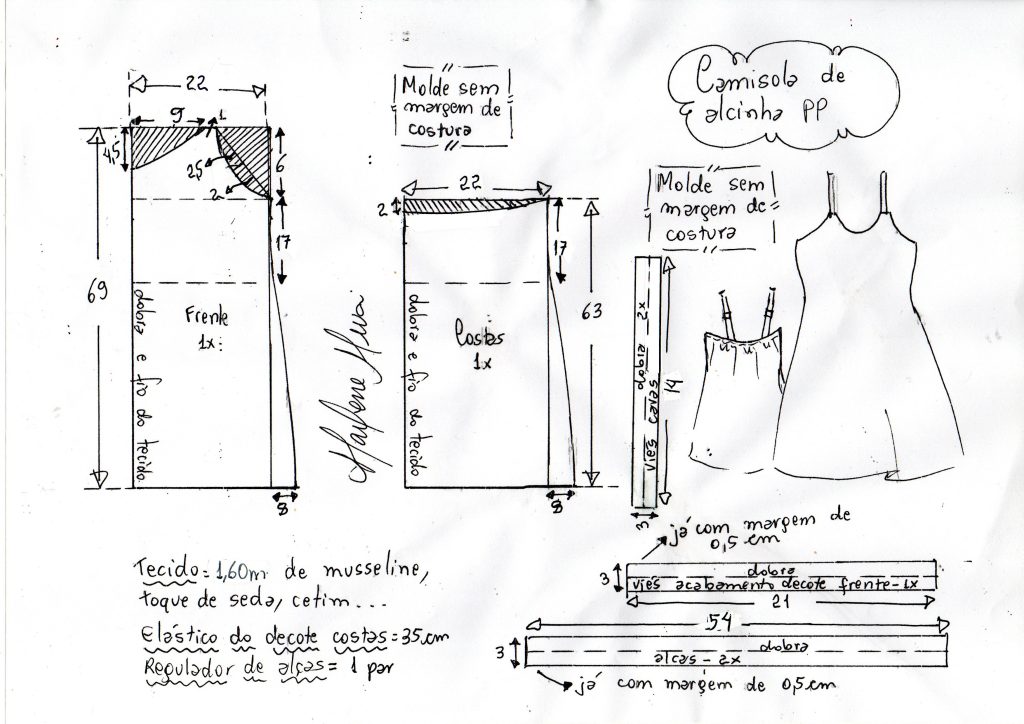 22
9
1
4,5
2,5
2
6
17
69
dobra e fio do tecido
Frente
1x
8
Molde sem
margem de
costura
22
2
17
63
dobra e fio do tecido
Costas
1x
8
Marlene Mukai
Camisola de
alcinha PP
Molde sem
margem de
costura
dobra 2x
viés cavas
14
3
já com margem de
0,5 cm
3
dobra
viés acabamento decote frente-1x
21
54
3
dobra
alças - 2x
já com margem de 0,5 cm
Tecido = 1,60m de musseline,
toque de seda, cetim...
Elástico do decote costas = 35 cm
Regulador de alças = 1 par